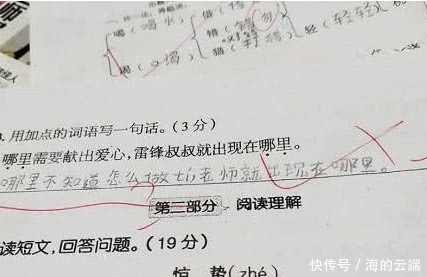 喝(喝水) 借(借
渴(口渴) 惜(
猎(打猎) 轻(轻轻)
3.用加点的词语写一句话。(3分)
哪里需要献出爱心,雷锋叔叔就出现在哪里。
哪里不知道怎么做七,老师就出现在哪里。
第三部分 阅读理解
读短文,回答问题。(19分)
惊蛰(zhé)
快传号/海的云端